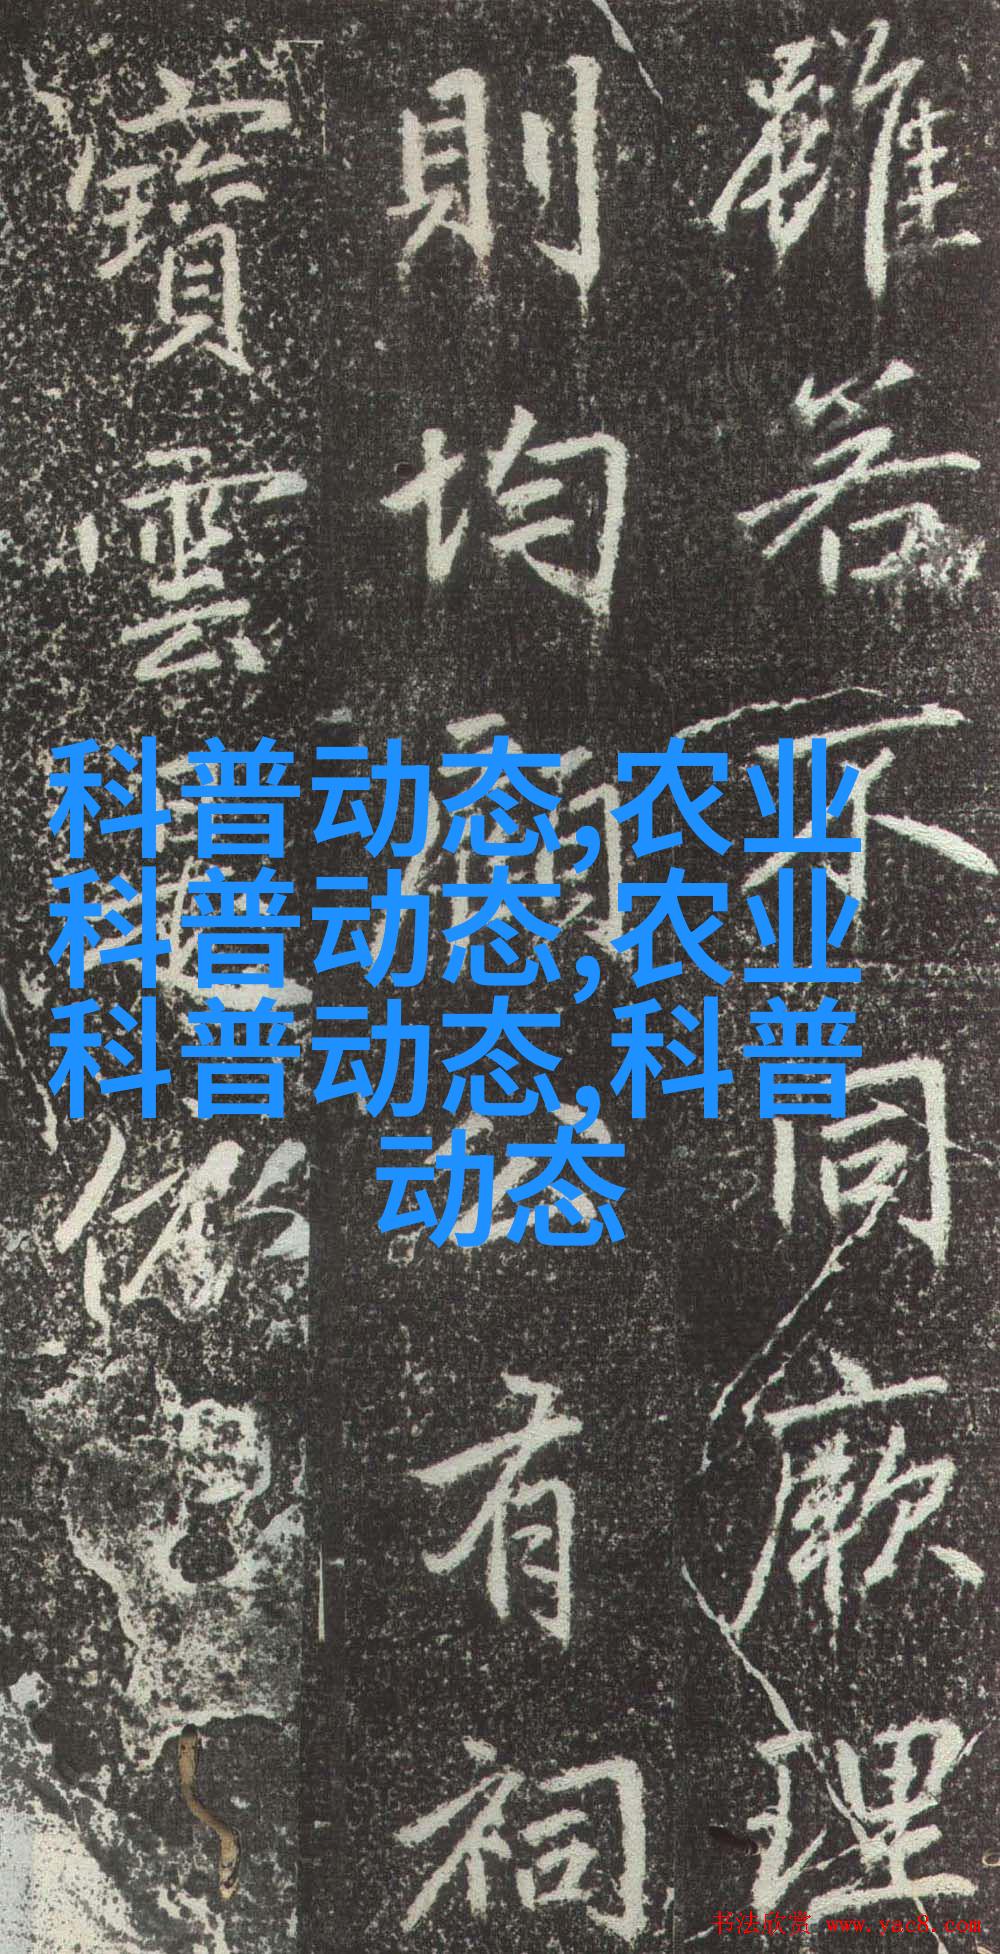 雖若不同厥理
則均有祠
寶雲
科普动态,农业
科普动态,农业
科普动态,科普
动态
书法欣赏 www.yac8.com